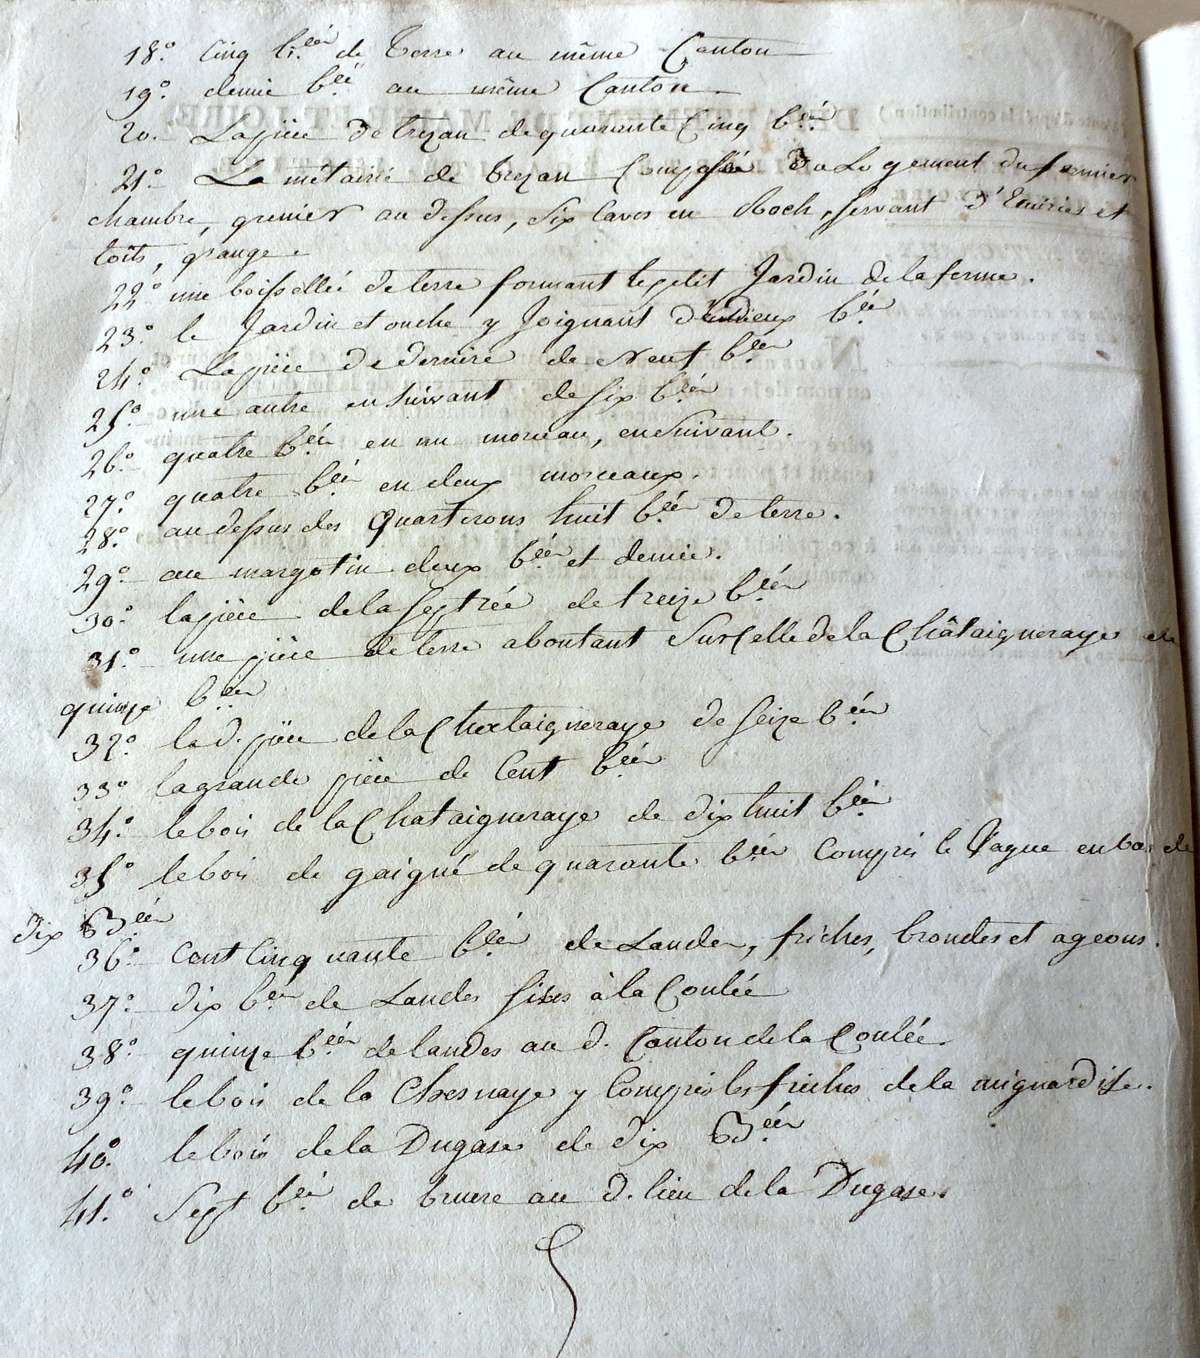 18.° Cinq b.ées de Terre au même Canton
19.° demie b.ée au même Canton.
20. La pièce de trezan de quarante Cinq b.ées
21.° La métairie de trezan Composée du Logement du fermier
chambre, grenier au dessus, Six Caves en Roch, servant d'Ecuries et
toits, grange.
22.° une boisselée de terre formant le petit Jardin de la ferme.
23.° le Jardin et ouche y Joignant deux b.ées
24.° La pièce de derrière de Neuf b.ées
25.° une autre en suivant de six b.ées
26.° quatre b.ées en un morceau, en Suivant.
27.° quatre b.ées en deux morceaux.
28.° au dessus des Quarterons huit b.ées de terre.
29.° au margotin deux b.ées et demie.
30.° la pièce de la Septrée de treize b.ées
31.° une pièce de terre aboutant Sur Celle de la Châtaigneraye de
quinze b.ées
32.° la d. pièce de la Chataigneraye de Seize b.ées
33.° la grande pièce de Cent b.ées
34.° le bois de la Chataigneraye de dix huit b.ées
35.° le bois de gaigné de quarante b.ées Compris le Vague en bas de
dix B.ées
36.° Cent Cinquante b.ées de Landes, friches, brondes et ageons.
37.° dix b.ées de Landes Sises à la Coulée
38.° quinze b.ées de landes au d. Canton de la Coulée.
39.° le bois de la Chesnaye y Compris les friches de la mignardise.
40.° le bois de la Dugase de dix B.ées
41.° Sept b.ées de bruere au d. lieu de la Dugase.